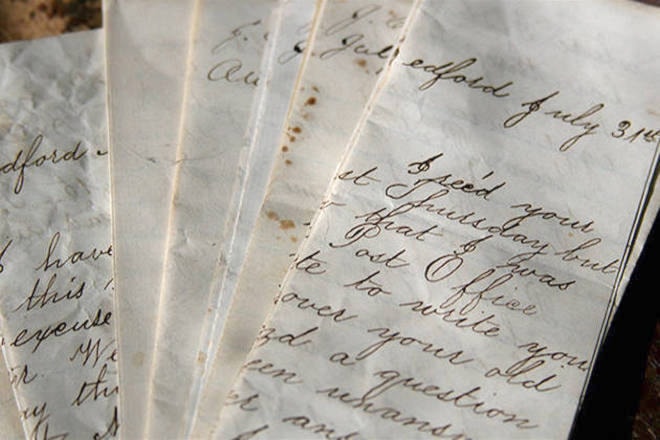 dford
I have
this
excuse
r. We
ay th
Au
J. Jul
edford July 31st
I rec'd your
st Thursday but
that I was
Post Office
te to write you
over your old
zd a question
een unansw
er an